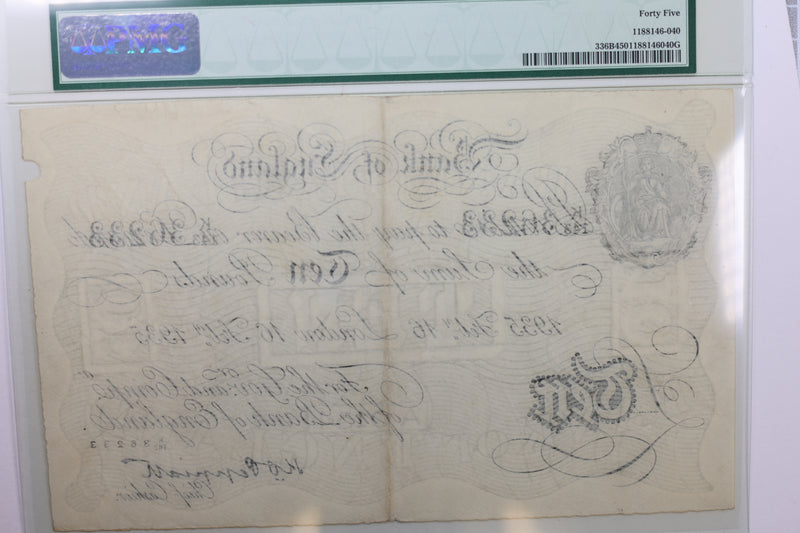 PMG
Forty Five
1188146-040
336B4501188146040G
Bank of England
36233 to pay the Bearer 36233
the Sum of Ten Pounds
1935 Feby. 16 London 16 Feby. 1935
For the Govr. and Compa.
of the Bank of England
36233
Ten
Chief Cashier